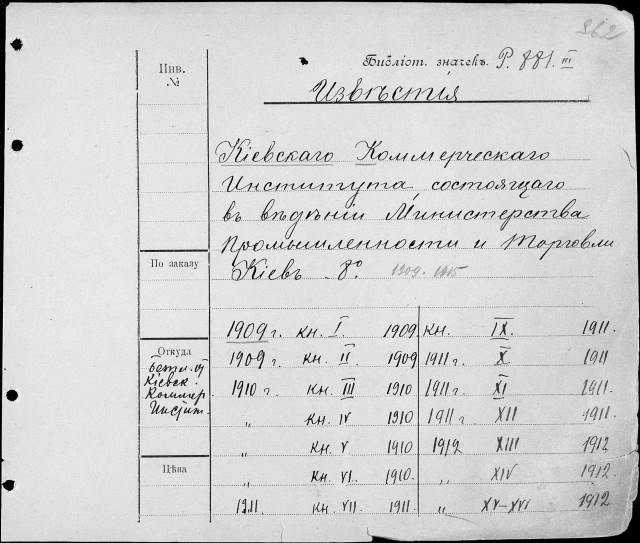 362
Инв.
№
Библіот. значекъ. Р. 881. III
Извѣстія
Кіевскаго Коммерческаго
Института, состоящаго
въ вѣдѣніи Министерства
Промышленности и Торговли
Кіевъ 8º. 1909-1915
По заказу
1909 г. кн. I. 1909 кн. IX. 1911.
1909 г. кн. II 1909 1911 г. X. 1911
1910 г. кн. III 1910 1911 г. XI 1911.
„ кн. IV 1910 1911 г. XII 1911.
„ кн. V 1910 1912 XIII 1912
„ кн. VI. 1910. „ XIV 1912.
1911. кн. VII. 1911. „ XV-XVI 1912
Откуда
Кіевск.
Коммер.
Инстит.
Цѣна